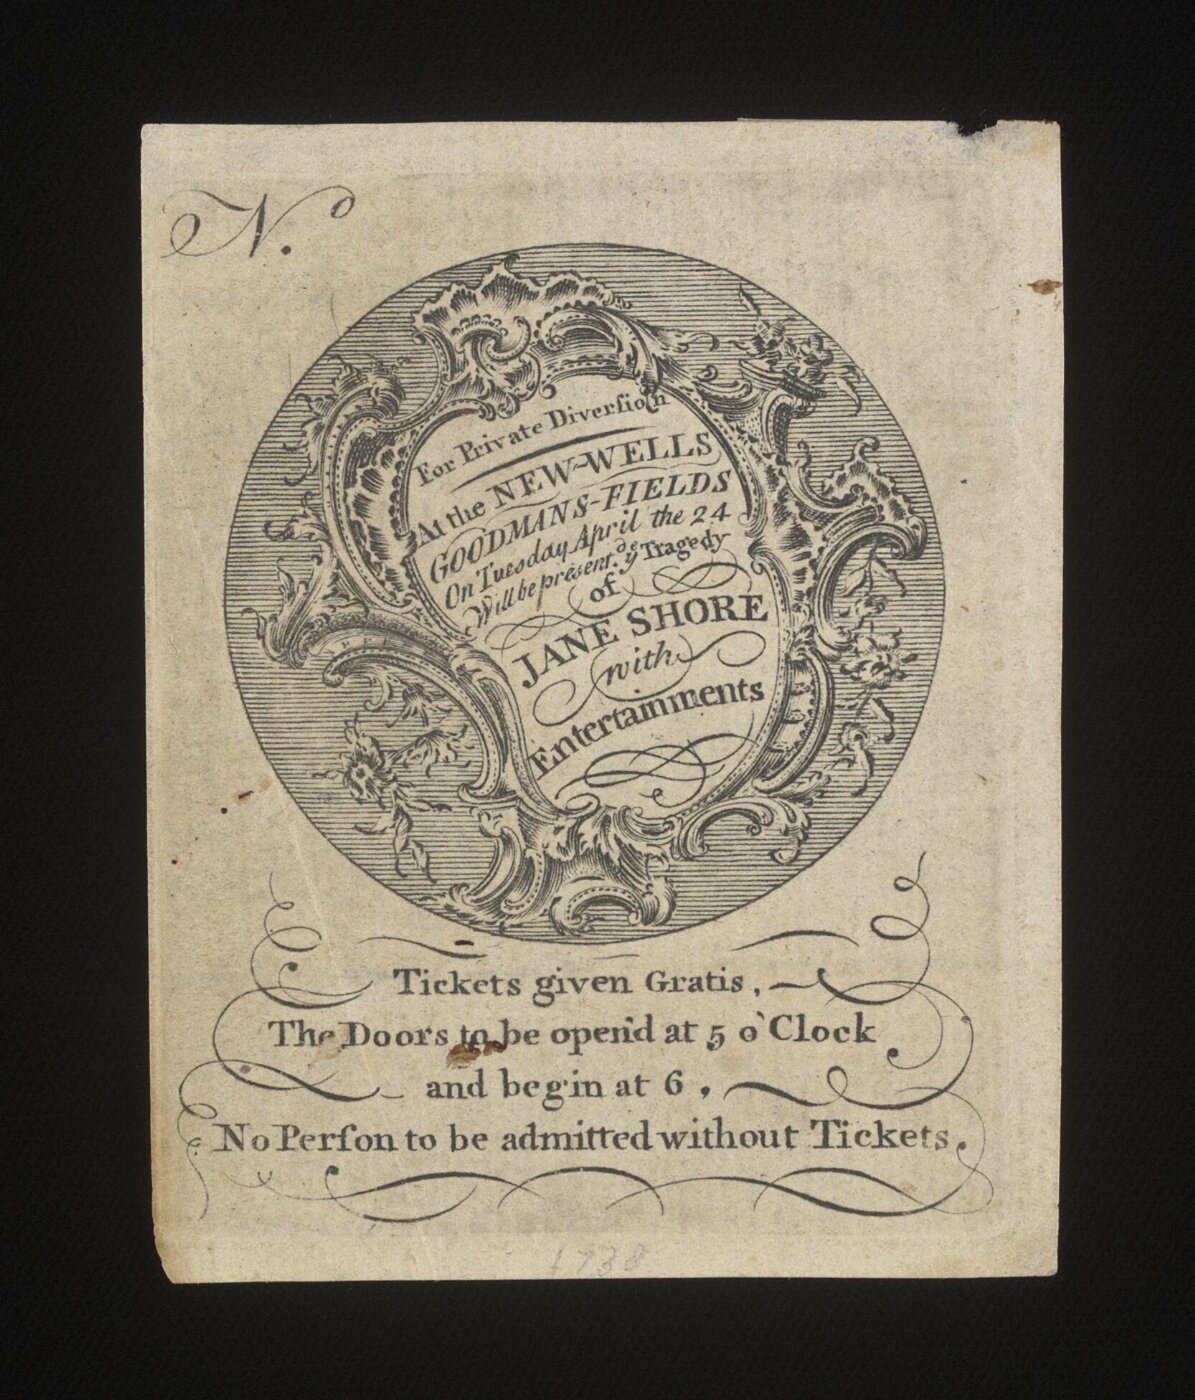 N.º
For Private Diverſioſn
At the NEW-WELLS
GOODMANS-FIELDS
On Tuesday April the 24
Will be present.ᵈ yᵉ Tragedy
of
JANE SHORE
with
Entertainments
Tickets given Gratis,
The Doors to be open'd at 5 o'Clock
and begin at 6,
No Perſon to be admitted without Tickets.
1738